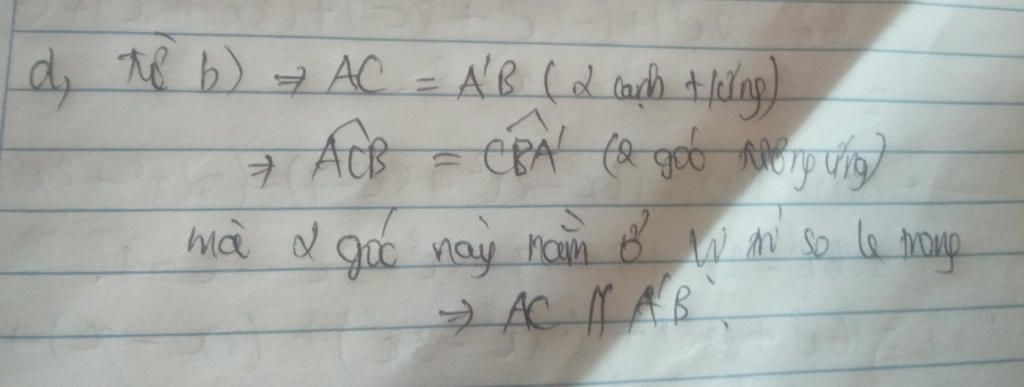 d, từ b) ⇒ AC = A'B (2 cạnh t/ứng)
⇒ \widehat{ACB} = \widehat{CBA'} (2 góc tương ứng)
mà 2 góc này nằm ở vị trí so le trong
⇒ AC // A'B.